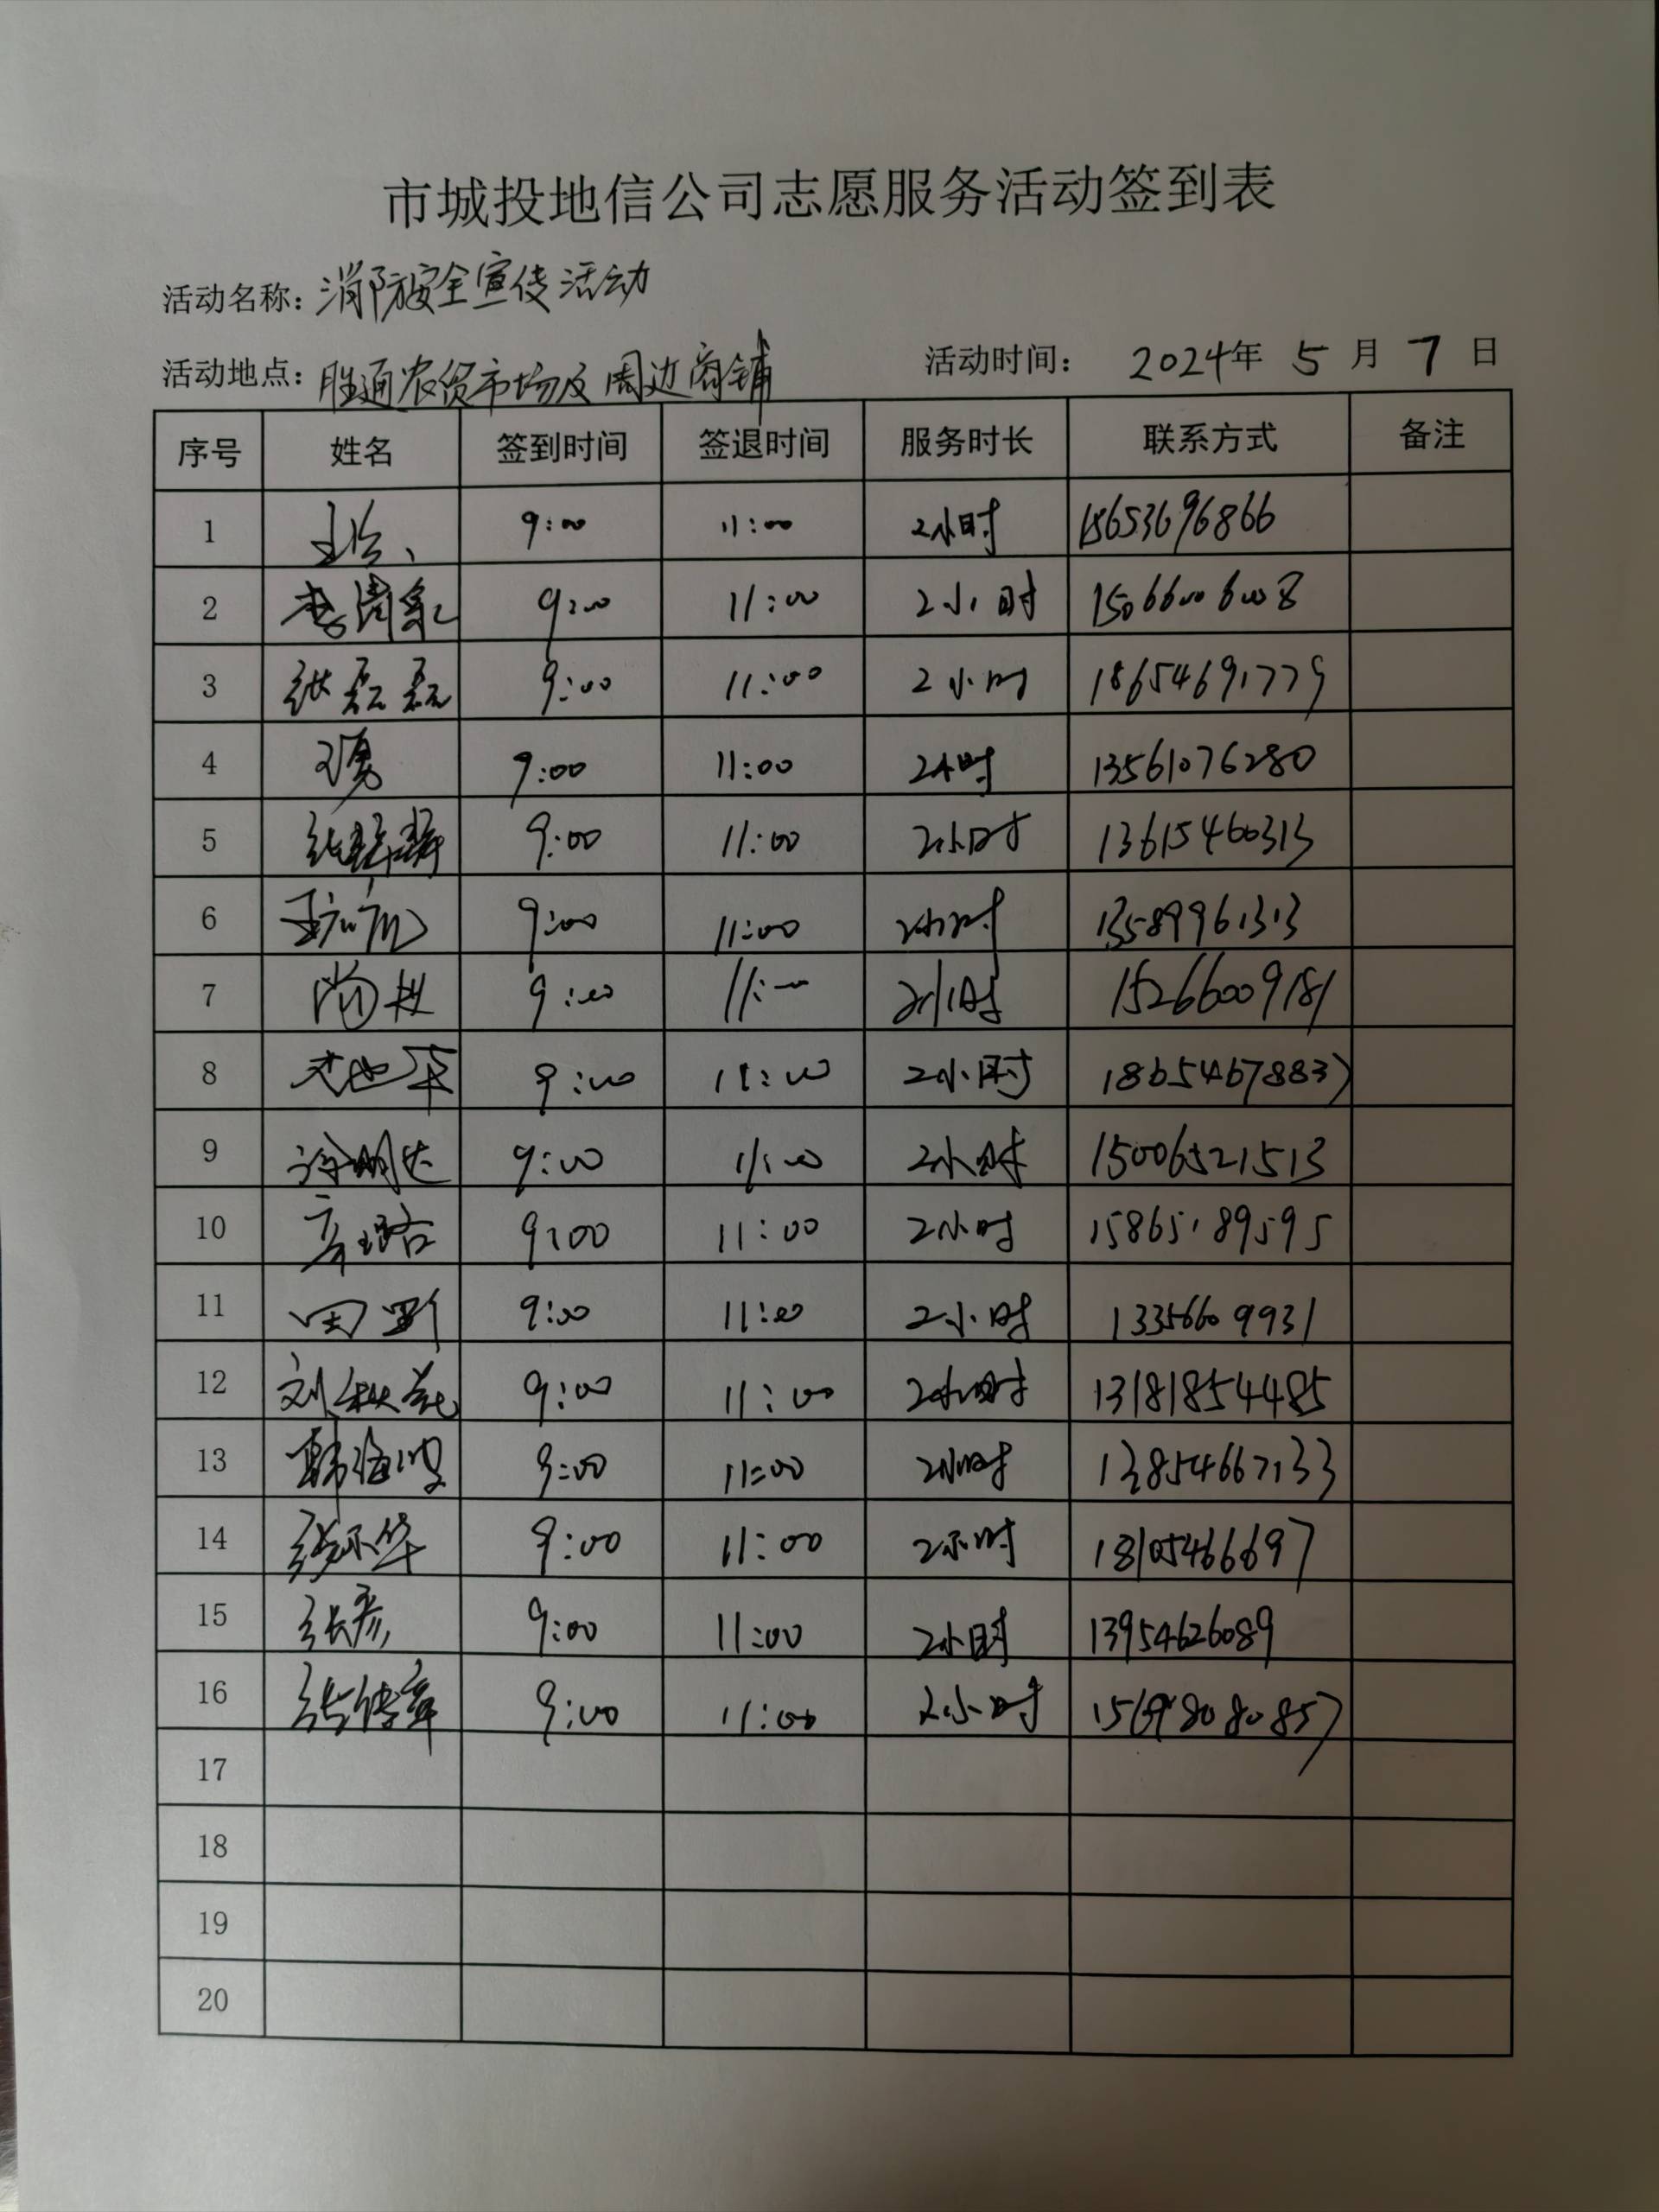 市城投地信公司志愿服务活动签到表
活动名称：消防安全宣传活动
活动地点：胜通农贸市场及周边商铺 活动时间： 2024年 5 月 7 日
序号 姓名 签到时间 签退时间 服务时长 联系方式 备注
1 9:00 11:00 2小时 18653696866
2 9:00 11:00 2小时 15066006008
3 张磊磊 9:00 11:00 2小时 18654691779
4 王勇 9:00 11:00 2小时 13561076280
5 9:00 11:00 2小时 13615460313
6 9:00 11:00 2小时 13589961313
7 9:00 11:00 2小时 15266009181
8 9:00 11:00 2小时 18654678837
9 徐明达 9:00 11:00 2小时 15006521513
10 9:00 11:00 2小时 15865189595
11 田野 9:00 11:00 2小时 13356609931
12 9:00 11:00 2小时 13181854485
13 韩海波 9:00 11:00 2小时 13854667133
14 9:00 11:00 2小时 18105466697
15 张彦 9:00 11:00 2小时 13954626089
16 张传章 9:00 11:00 2小时
17
18
19
20